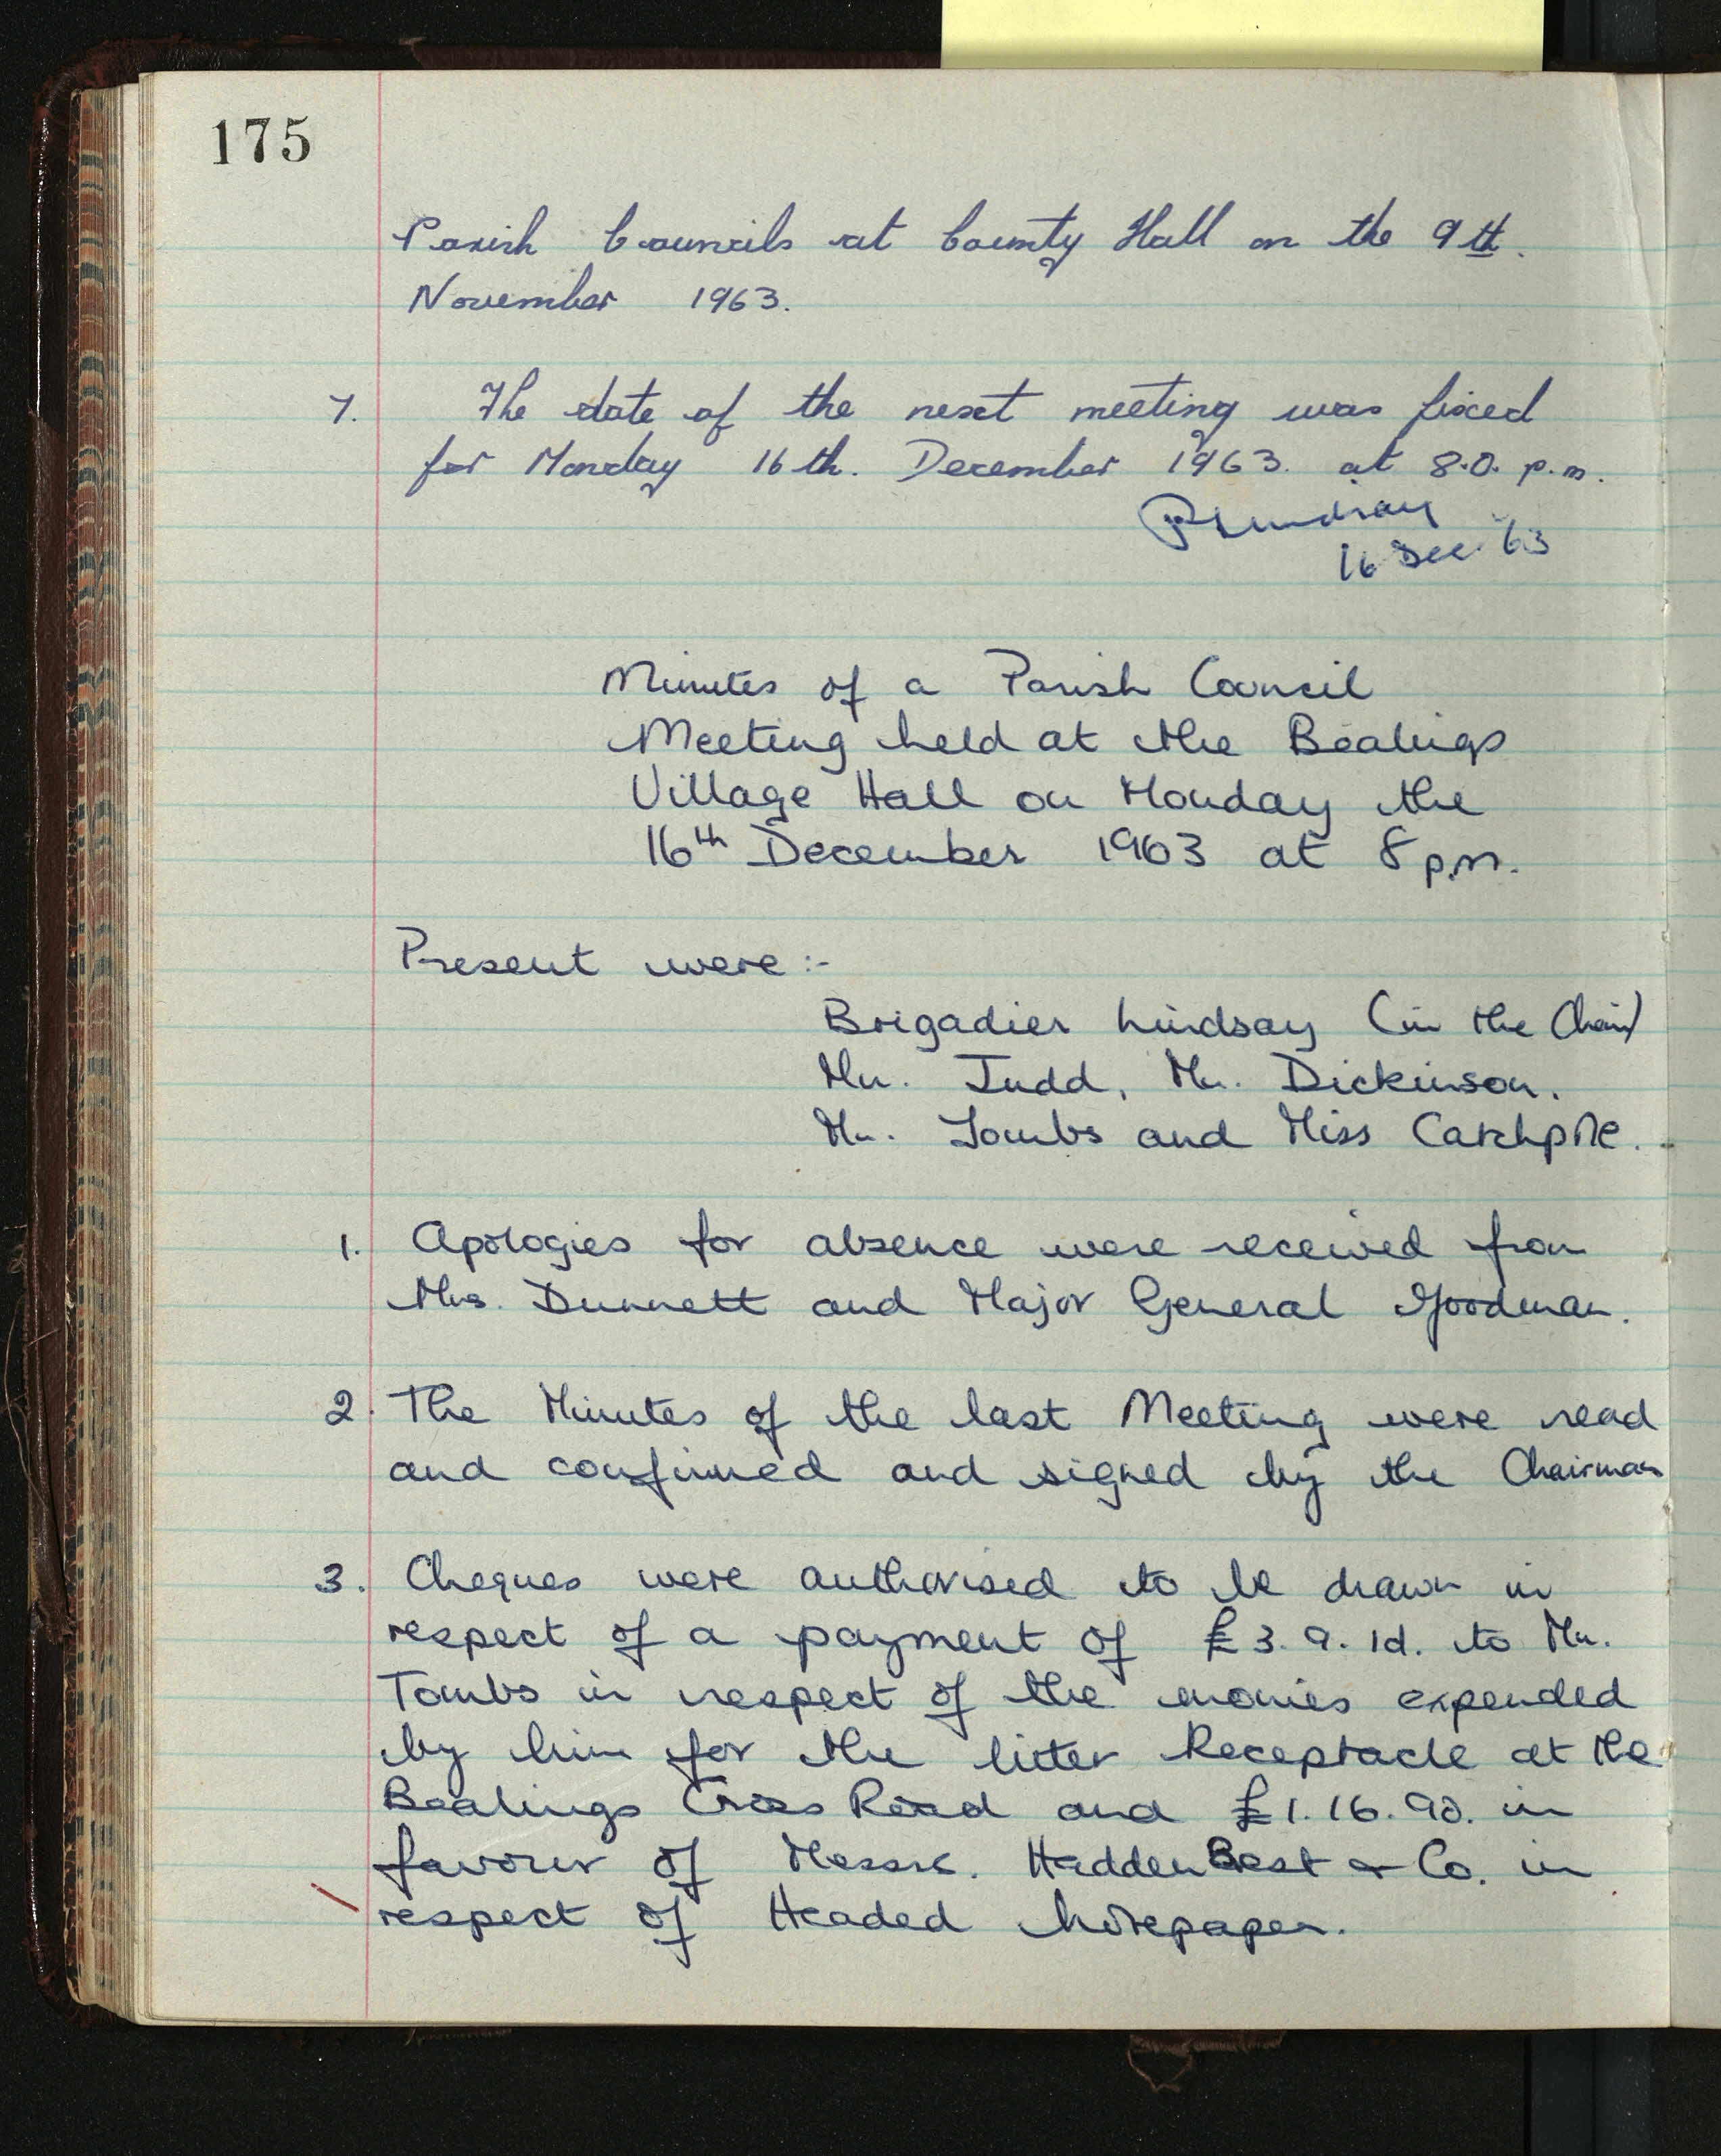 175
Parish Councils at County Hall on the 9th.
November 1963.
7. The date of the next meeting was fixed
for Monday 16th. December 1963. at 8.0. p.m.
Lindsay
16 Dec. 63
Minutes of a Parish Council
Meeting held at the Bealings
Village Hall on Monday the
16th December 1963 at 8 p.m.
Present were :-
Brigadier Lindsay (in the Chair)
Mr. Judd, Mr. Dickinson.
Mr. Tombs and Miss Catchpole.
1. Apologies for absence were received from
Mrs. Dunnett and Major General Goodman.
2. The Minutes of the last Meeting were read
and confirmed and signed by the Chairman
3. Cheques were authorised to be drawn in
respect of a payment of £3. 9. 1d. to Mr.
Tombs in respect of the monies expended
by him for the litter Receptacle at the
Bealings Cross Road and £1. 16. 9d. in
favour of Messrs. Hadden Best & Co. in
respect of Headed Notepaper.